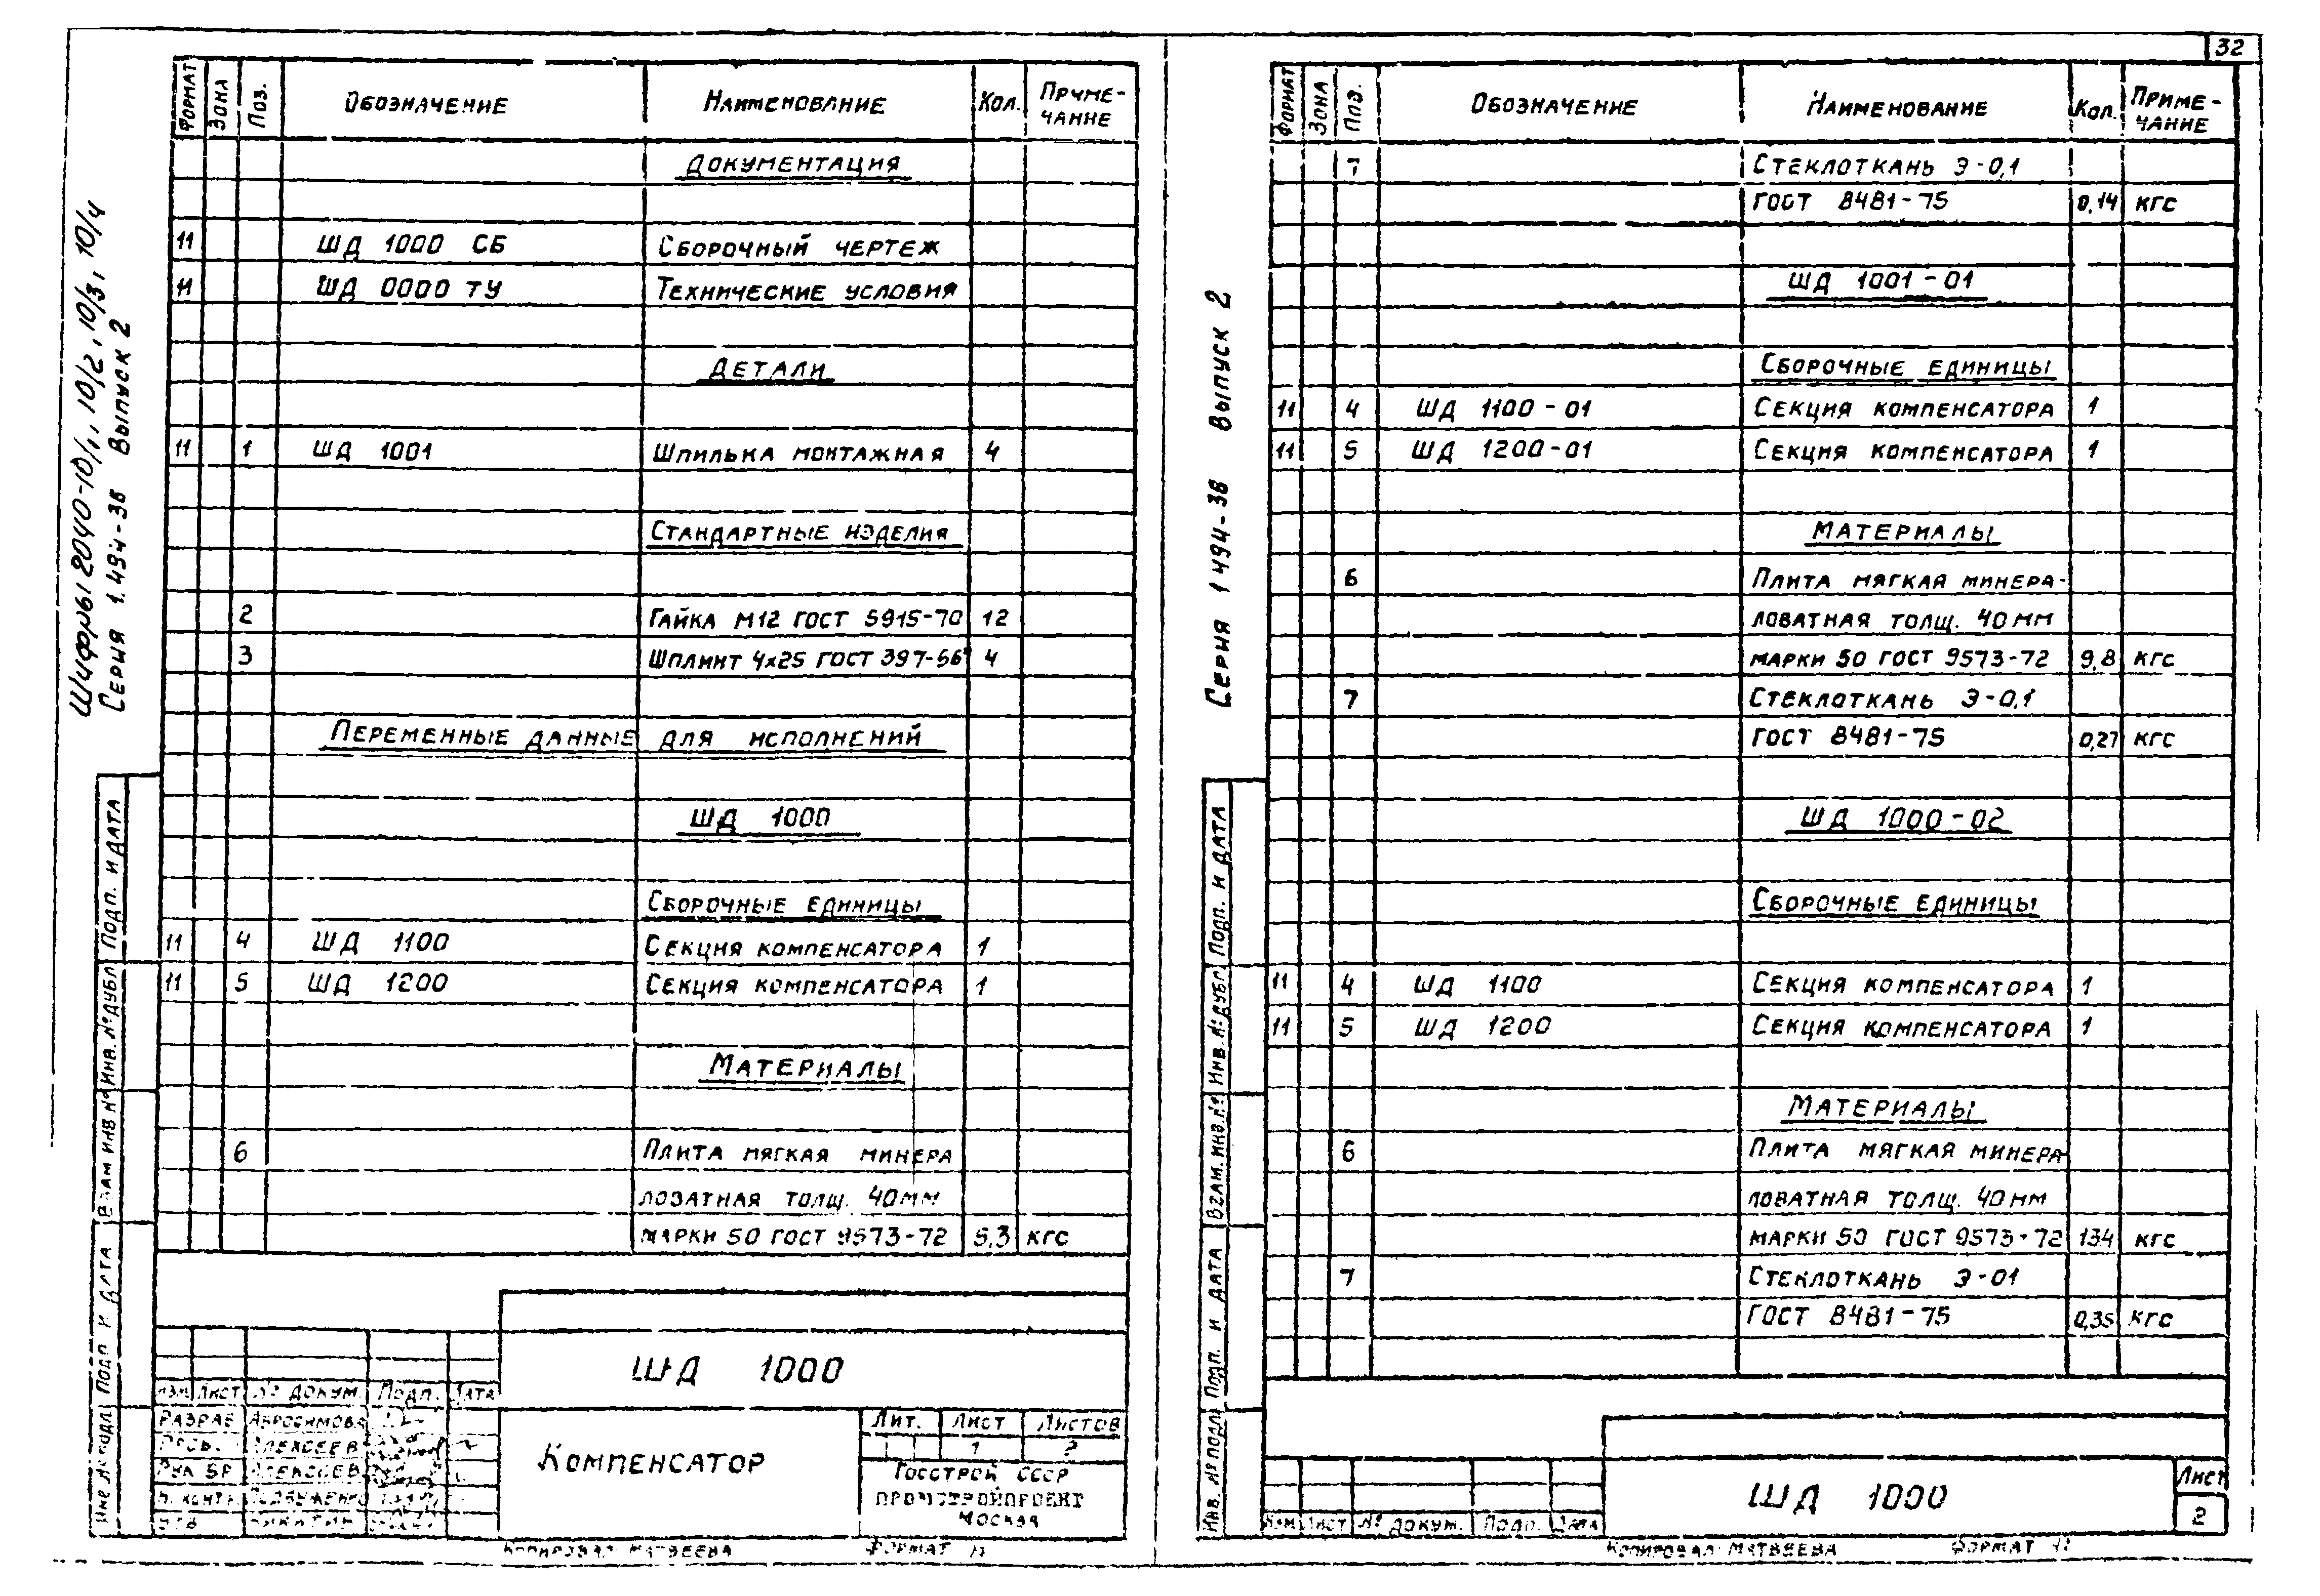 32
Шифры 2040-10/1, 10/2, 10/3, 10/4
Серия 1.494-38 Выпуск 2
Формат Зона Поз. Обозначение Наименование Кол. Примечание
Документация
11 ШД 1000 СБ Сборочный чертеж
11 ШД 0000 ТУ Технические условия
Детали
11 1 ШД 1001 Шпилька монтажная 4
Стандартные изделия
2 Гайка М12 ГОСТ 5915-70 12
3 Шплинт 4х25 ГОСТ 397-66 4
Переменные данные для исполнений
ШД 1000
Сборочные единицы
11 4 ШД 1100 Секция компенсатора 1
11 5 ШД 1200 Секция компенсатора 1
Материалы
6 Плита мягкая минера
ловатная толщ. 40мм
марки 50 ГОСТ 9573-72 5,3 кгс
Подп. и дата
Инв. № дубл
Взам инв №
Подп и дата
Инв № подл
ШД 1000
Изм Лист № докум. Подп. Дата
Разраб Абросимова
Алексеев
Рук бр Алексеев
Н. контр
Никитин
Компенсатор
Лит. Лист Листов
1 2
Госстрой СССР
Промстройпроект
Москва
Копировал Матвеева Формат 11
Серия 1494-38 Выпуск 2
Формат Зона Поз. Обозначение Наименование Кол. Примечание
7 Стеклоткань Э-0,1
ГОСТ 8481-75 0,14 кгс
ШД 1001-01
Сборочные единицы
11 4 ШД 1100-01 Секция компенсатора 1
11 5 ШД 1200-01 Секция компенсатора 1
Материалы
6 Плита мягкая минера-
ловатная толщ. 40мм
марки 50 ГОСТ 9573-72 9,8 кгс
7 Стеклоткань Э-0,1
ГОСТ 8481-75 0,27 кгс
ШД 1000-02
Сборочные единицы
11 4 ШД 1100 Секция компенсатора 1
11 5 ШД 1200 Секция компенсатора 1
Материалы
6 Плита мягкая минера
ловатная толщ. 40мм
марки 50 ГОСТ 9573-72 134 кгс
7 Стеклоткань Э-01
ГОСТ 8481-75 0,35 кгс
Подп. и дата
Инв. № дубл
Взам. инв. №
Подп. и дата
Инв. № подл
Изм Лист № докум. Подп. Дата
ШД 1000
Лист
2
Копировал Матвеева Формат 11